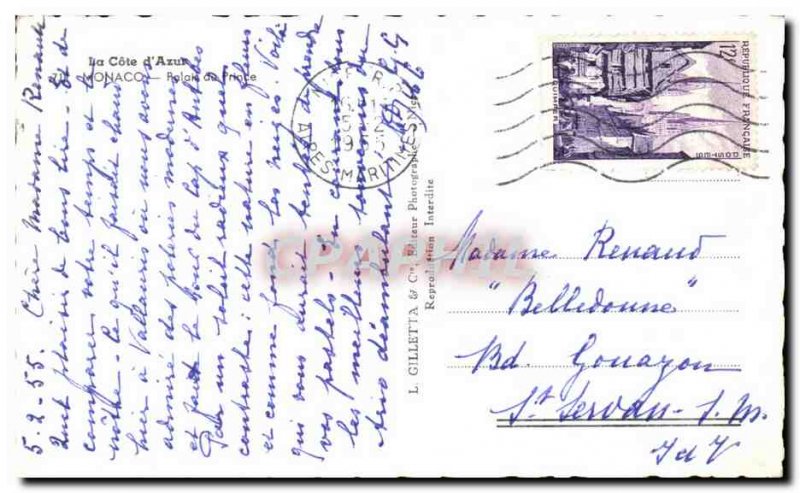 La Côte d'Azur
MONACO — Palais du Prince
5.2.55. Chère Madame Renaud
plaisir de vous lire - et de
comparer votre temps et le
nôtre - Ce qu'il faisait chaud
hier à Vallauris où nous avons
admiré des poteries modernes
et fait le tour du Cap d'Antibes
par un soleil radieux quel
contraste: cette nature en fleurs
et comme fond les neiges. Voilà
qui vous aurait tenté de prendre
vos pastels - En commun tous
les meilleurs souvenirs du
trio déambulant
L. GILLETTA & Cie, Editeur Photographe, Nice
Reproduction Interdite
ALPES MARITIMES
REPUBLIQUE FRANÇAISE
12f
QUIMPER
POSTES
Madame Renaud
"Belledonne"
Bd. Gouazon
St Servan - s. m.
I d V
CPAPHIL